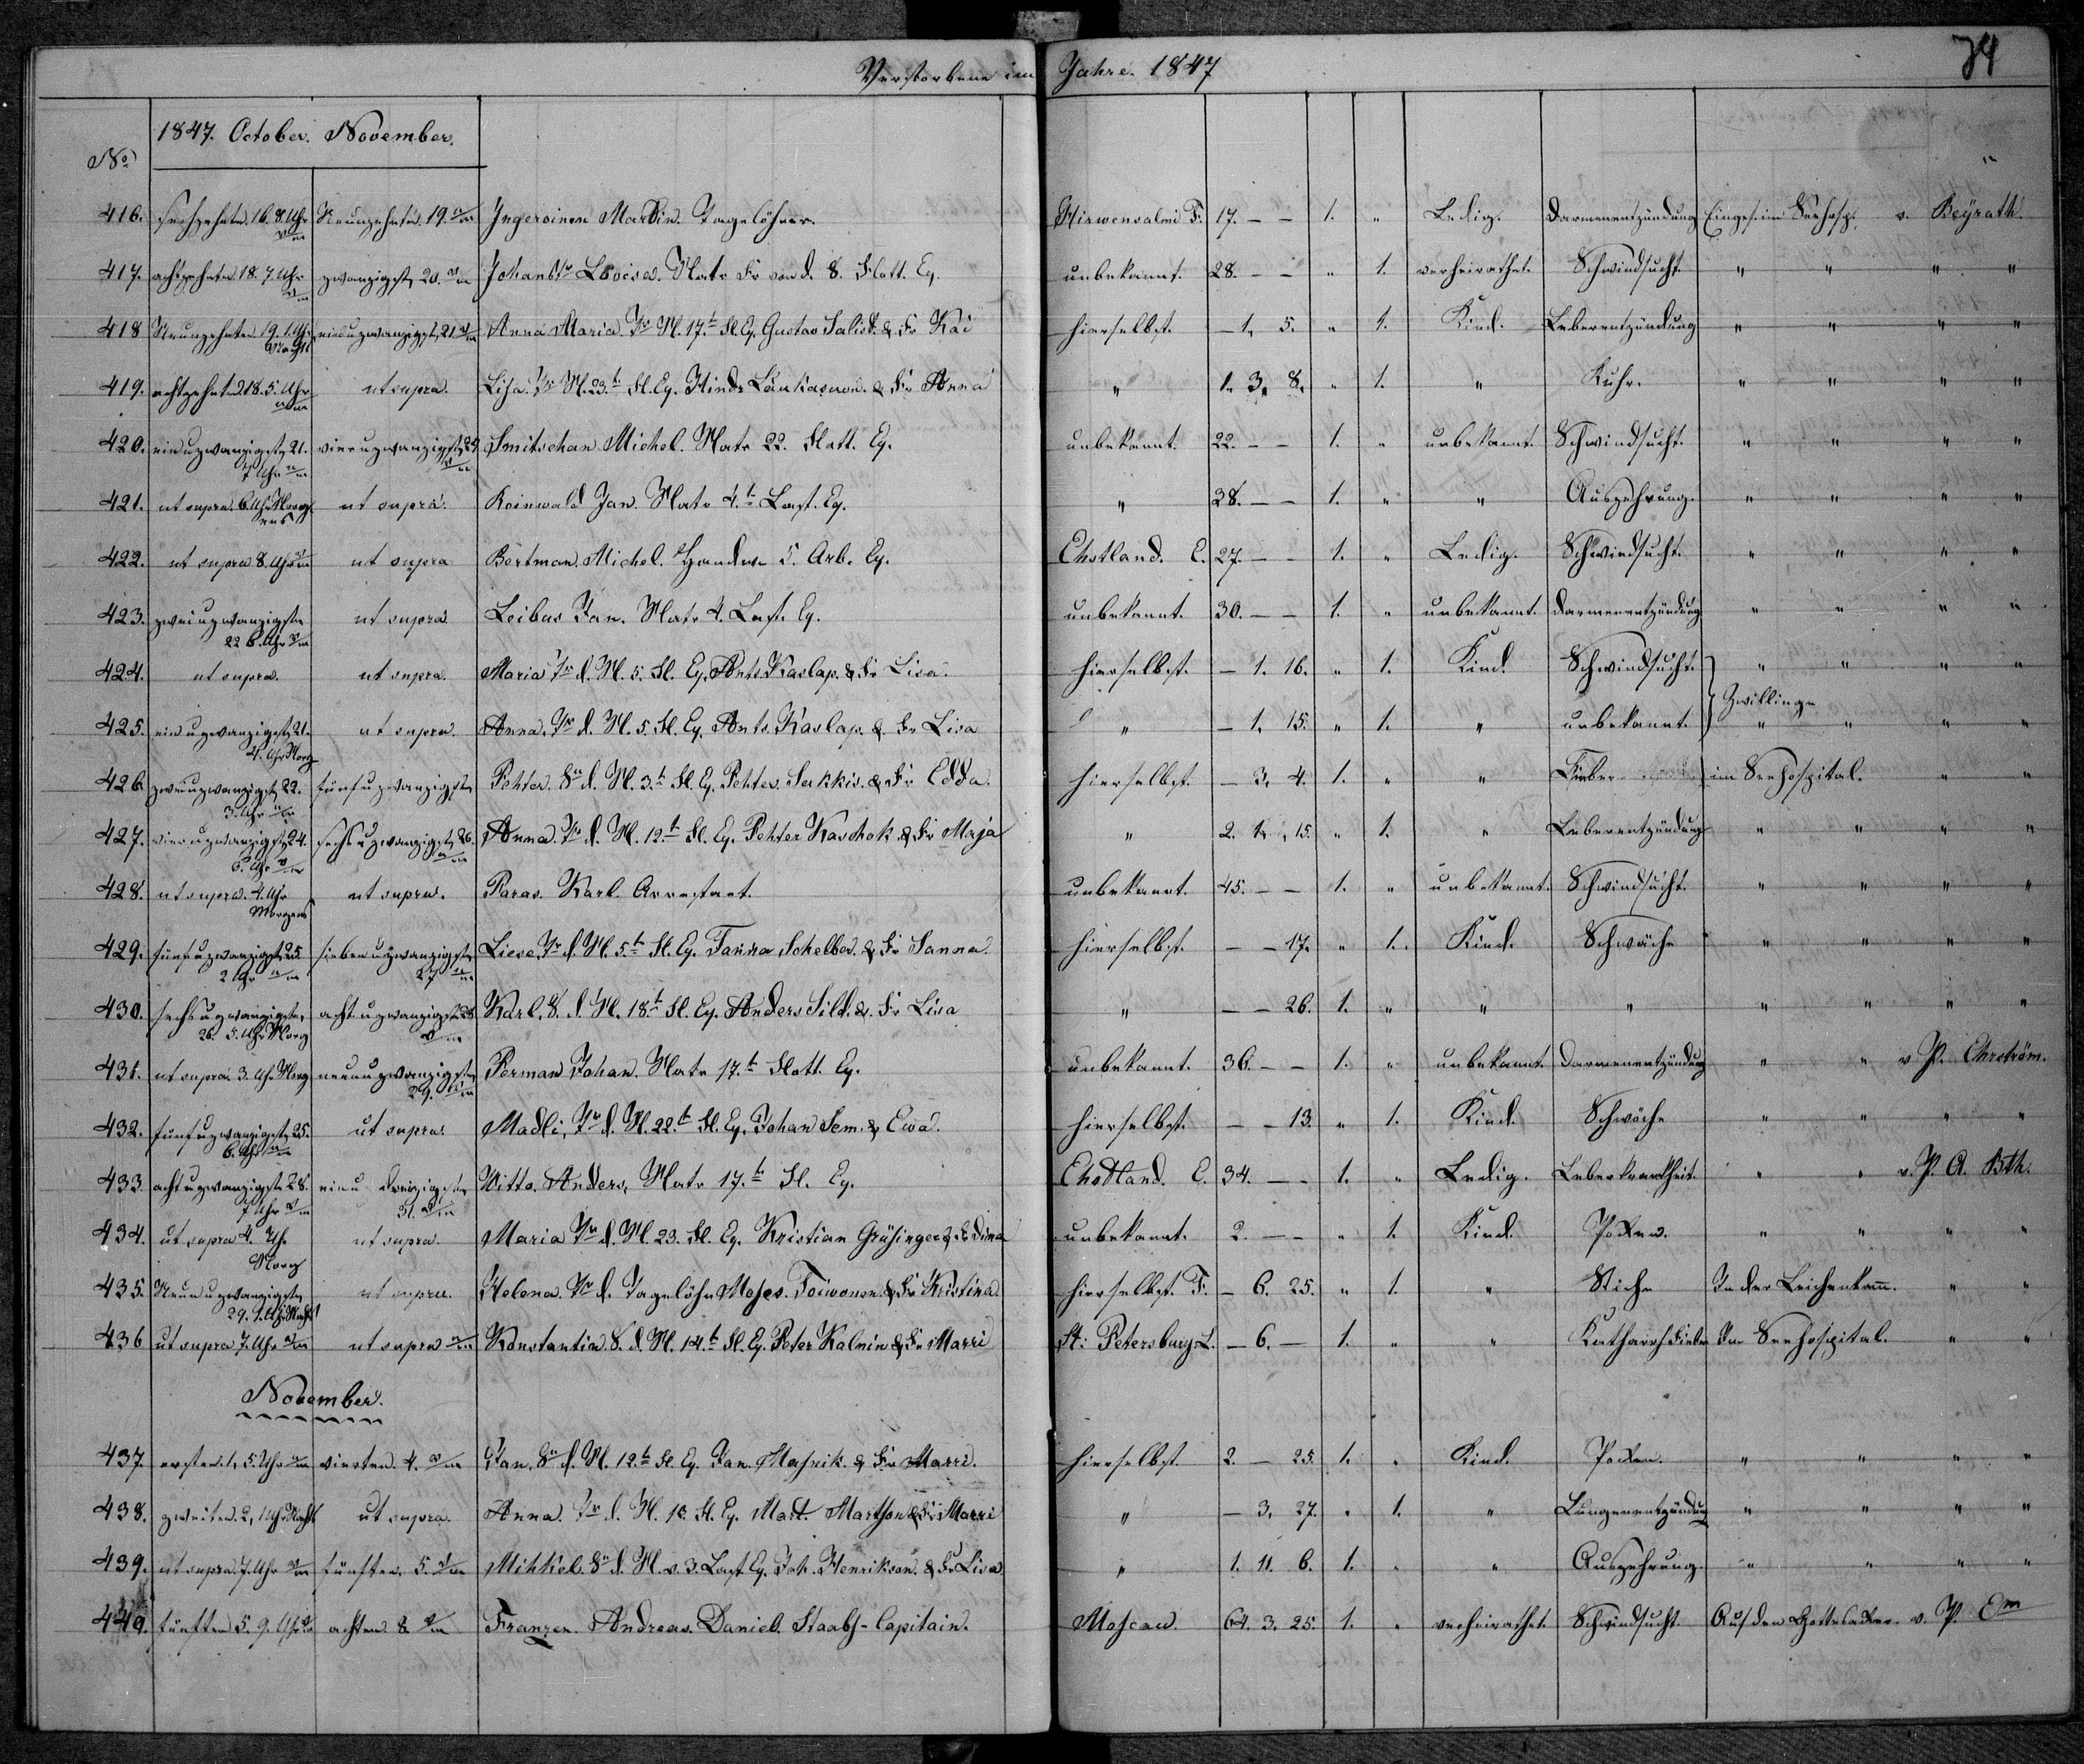 Verstorbene im Jahre. 1847
74
No 1847. October. November.
416. sechzehnten 16. 8. Uhr Neunzehnten. 19. Ingeroinen Martin. Tagelöhner. Hirwensalmi F. 17. – – 1. " Ledig. Darmenentzündung Einges. im Seehosp. v. Beyrath.
417. achtzehnten 18. 7. Uhr zwanzigsten 20. Lovisa. Matr. Fr 8. Flott. Eq. unbekannt. 28. – – " 1. verheirathet. Schwindsucht. " " " "
418 Neunzehnten 19. 1. Uhr Nachts einundzwanzigst. 21. Anna Maria. Tr M. 17.t Fl. Eq. Gustav Salist. & Fr Kai hierselbst. – 1. 5. " 1. Kind. Leberentzündung " " " "
419. achtzehnten 18. 5. Uhr ut supra. Lisa. Tr M. 23.t Fl. Eq. Hindr Laukasnon. & Fr Anna " 1. 3. 8. " 1. " Ruhr. " " " "
420. einuzwanzigsten 21. 7 Uhr vieruzwanzigst. 24 Smitschan Michel. Matr 22. Flott. Eq. unbekannt. 22. – – 1. " unbekannt. Schwindsucht. " " " "
421. ut supra. 6 Uhr Morgens ut supra. Reinwald Jan. Matr 4.t Last. Eq. " 38. – – 1. " " Auszehrung. " " " "
422. ut supra 8. Uhr ut supra Bertman. Michel. Handw. 5. Arb. Eq. Ehstland. E. 27. – – 1. " Ledig. Schwindsucht. " " " "
423. zweiuzwanzigsten 22 6. Uhr ut supra. Leibus Jan. Matr 4. Last. Eq. unbekannt. 30. – – 1. " unbekannt. Darmenentzündung " " " "
424. ut supra. ut supra. Maria Tr d. M. 5. Fl. Eq. Ants. Kaslap. & Fr Lisa. hierselbst. – 1. 16. " 1. Kind. Schwindsucht. " " " "
Zwillinge
425. einuzwanzigsten 21. 4. Uhr Morg ut supra. Anna. Tr d. M. 5. Fl. Eq. Ants. Kaslap. & Fr Lisa " – 1. 15. " 1. " unbekannt. " " " "
426. zweiuzwanzigst. 22. 3. Uhr fünfuzwanzigsten Pehter. Sn d. M. 3.t Fl. Eq. Pehter. Sukkis. & Fr Edda. hierselbst. – 3. 4. 1. " " Fieber im Seehospital. " "
427. vieruzwanzigst. 24. 6. Uhr sechsuzwanzigst. 26. Anna. Tr d. M. 12.t Fl. Eq. Pehter Kaschok & Fr Maja " 2. 1. 15. " 1. " Leberentzündung " " " "
428. ut supra. 4. Uhr Morgens ut supra. Paras. Karl. Arrestant. unbekannt. 45. – – 1. " unbekannt. Schwindsucht. " " " "
429. fünfuzwanzigst. 25 2 Uhr siebenuzwanzigsten 27 Liese. Tr d. M. 5.t Fl. Eq. Tanna Schelba. & Fr Sanna. hierselbst. – – 17. " 1. Kind. Schwäche " " " "
430. sechsuzwanzigsten 26. 5. Uhr Morg achtuzwanzigst. 28 Karl. S. d. M. 18.t Fl. Eq. Anders Sild. & Fr Lisa " – – 26. 1. " " " " " " "
431. ut supra. 3. Uhr Morg neunuzwanzigsten 29. Perman Johan. Matr 17.t Flott. Eq. unbekannt. 36. – – 1. " unbekannt. Darmenentzündung " " v. P. Ehrström.
432. fünfuzwanzigst. 25. 6. Uhr ut supra. Madli, Tr d. M. 22.t Fl. Eq. Johan Sem. & Ewa. hierselbst. – – 13. " 1. Kind. Schwäche " " " "
433. achtuzwanzigst. 28. 7 Uhr einu dreizigsten 31. Witto. Anders, Matr 17.t Fl. Eq. Ehstland. E. 34. – – 1. " Ledig. Leberkrankheit. " " v. P. A. Bth.
434. ut supra 4. Uhr Morg ut supra. Maria Tr d. M. 23. Fl. Eq. Kristian Grüsinger & Fr Dina unbekannt. 2. – – " 1. Kind. Pocken. " " " "
435. Neunuzwanzigsten 29. 1. Uhr Nachts ut supra. Helena. Tr d. Tagelöhn Moses. Toiwonen & Fr Kristina hierselbst. F. – 6. 25. " 1. " Stiche In der Leichenkam. " "
436 ut supra 7. Uhr ut supra Konstantin S. d. M. 14.t Fl. Eq. Peter Kalnin & Fr Marri St: Petersburg L. – 6. – 1. " " Katharrh Fieber Im Seehospital. " "
November.
437. ersten. 1, 5. Uhr vierten. 4. Jan. Sn d. M. 12.t Fl. Eq. Jan. Masnik. & Fr Marri. hierselbst. 2. – 25. 1. " Kind. Pocken. " " " "
438. zweiten. 2, 1 Uhr Nacht ut supra. Anna. Tr d. M. 10. Fl. Eq. Mart. Martson & Fr Marri " – 3. 27. " 1. " Lungenentzündung " " " "
439. ut supra. 7. Uhr fünften. 5. Mihkel. Sn d. M. v. 3. Last Eq. Joh. Henrikson. & Fr Lisa " 1. 11. 6. 1. " " Auszehrung. " " " "
440. fünften 5. 9. Uhr achten 8 Franzen. Andreas. Daniel. Staabs-Capitain. Moscau. 64. 3. 25. 1. " verheirathet. Schwindsucht. Auf den Gottesacker. v. P. Em